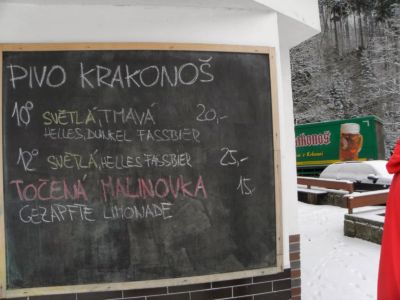 PIVO KRAKONOŠ
10° SVĚTLÁ, TMAVÁ 20,-
HELLES, DUNKEL FASSBIER
12° SVĚTLÁ, HELLES FASSBIER 25,-
TOČENÁ MALINOVKA 15,-
GEZAPFTE LIMONADE
rakonoš